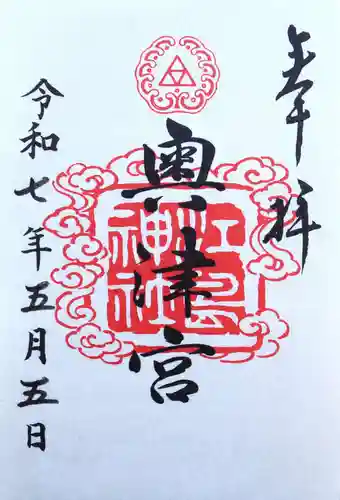 奉拝
奥津宮
江島神社
令和七年五月五日